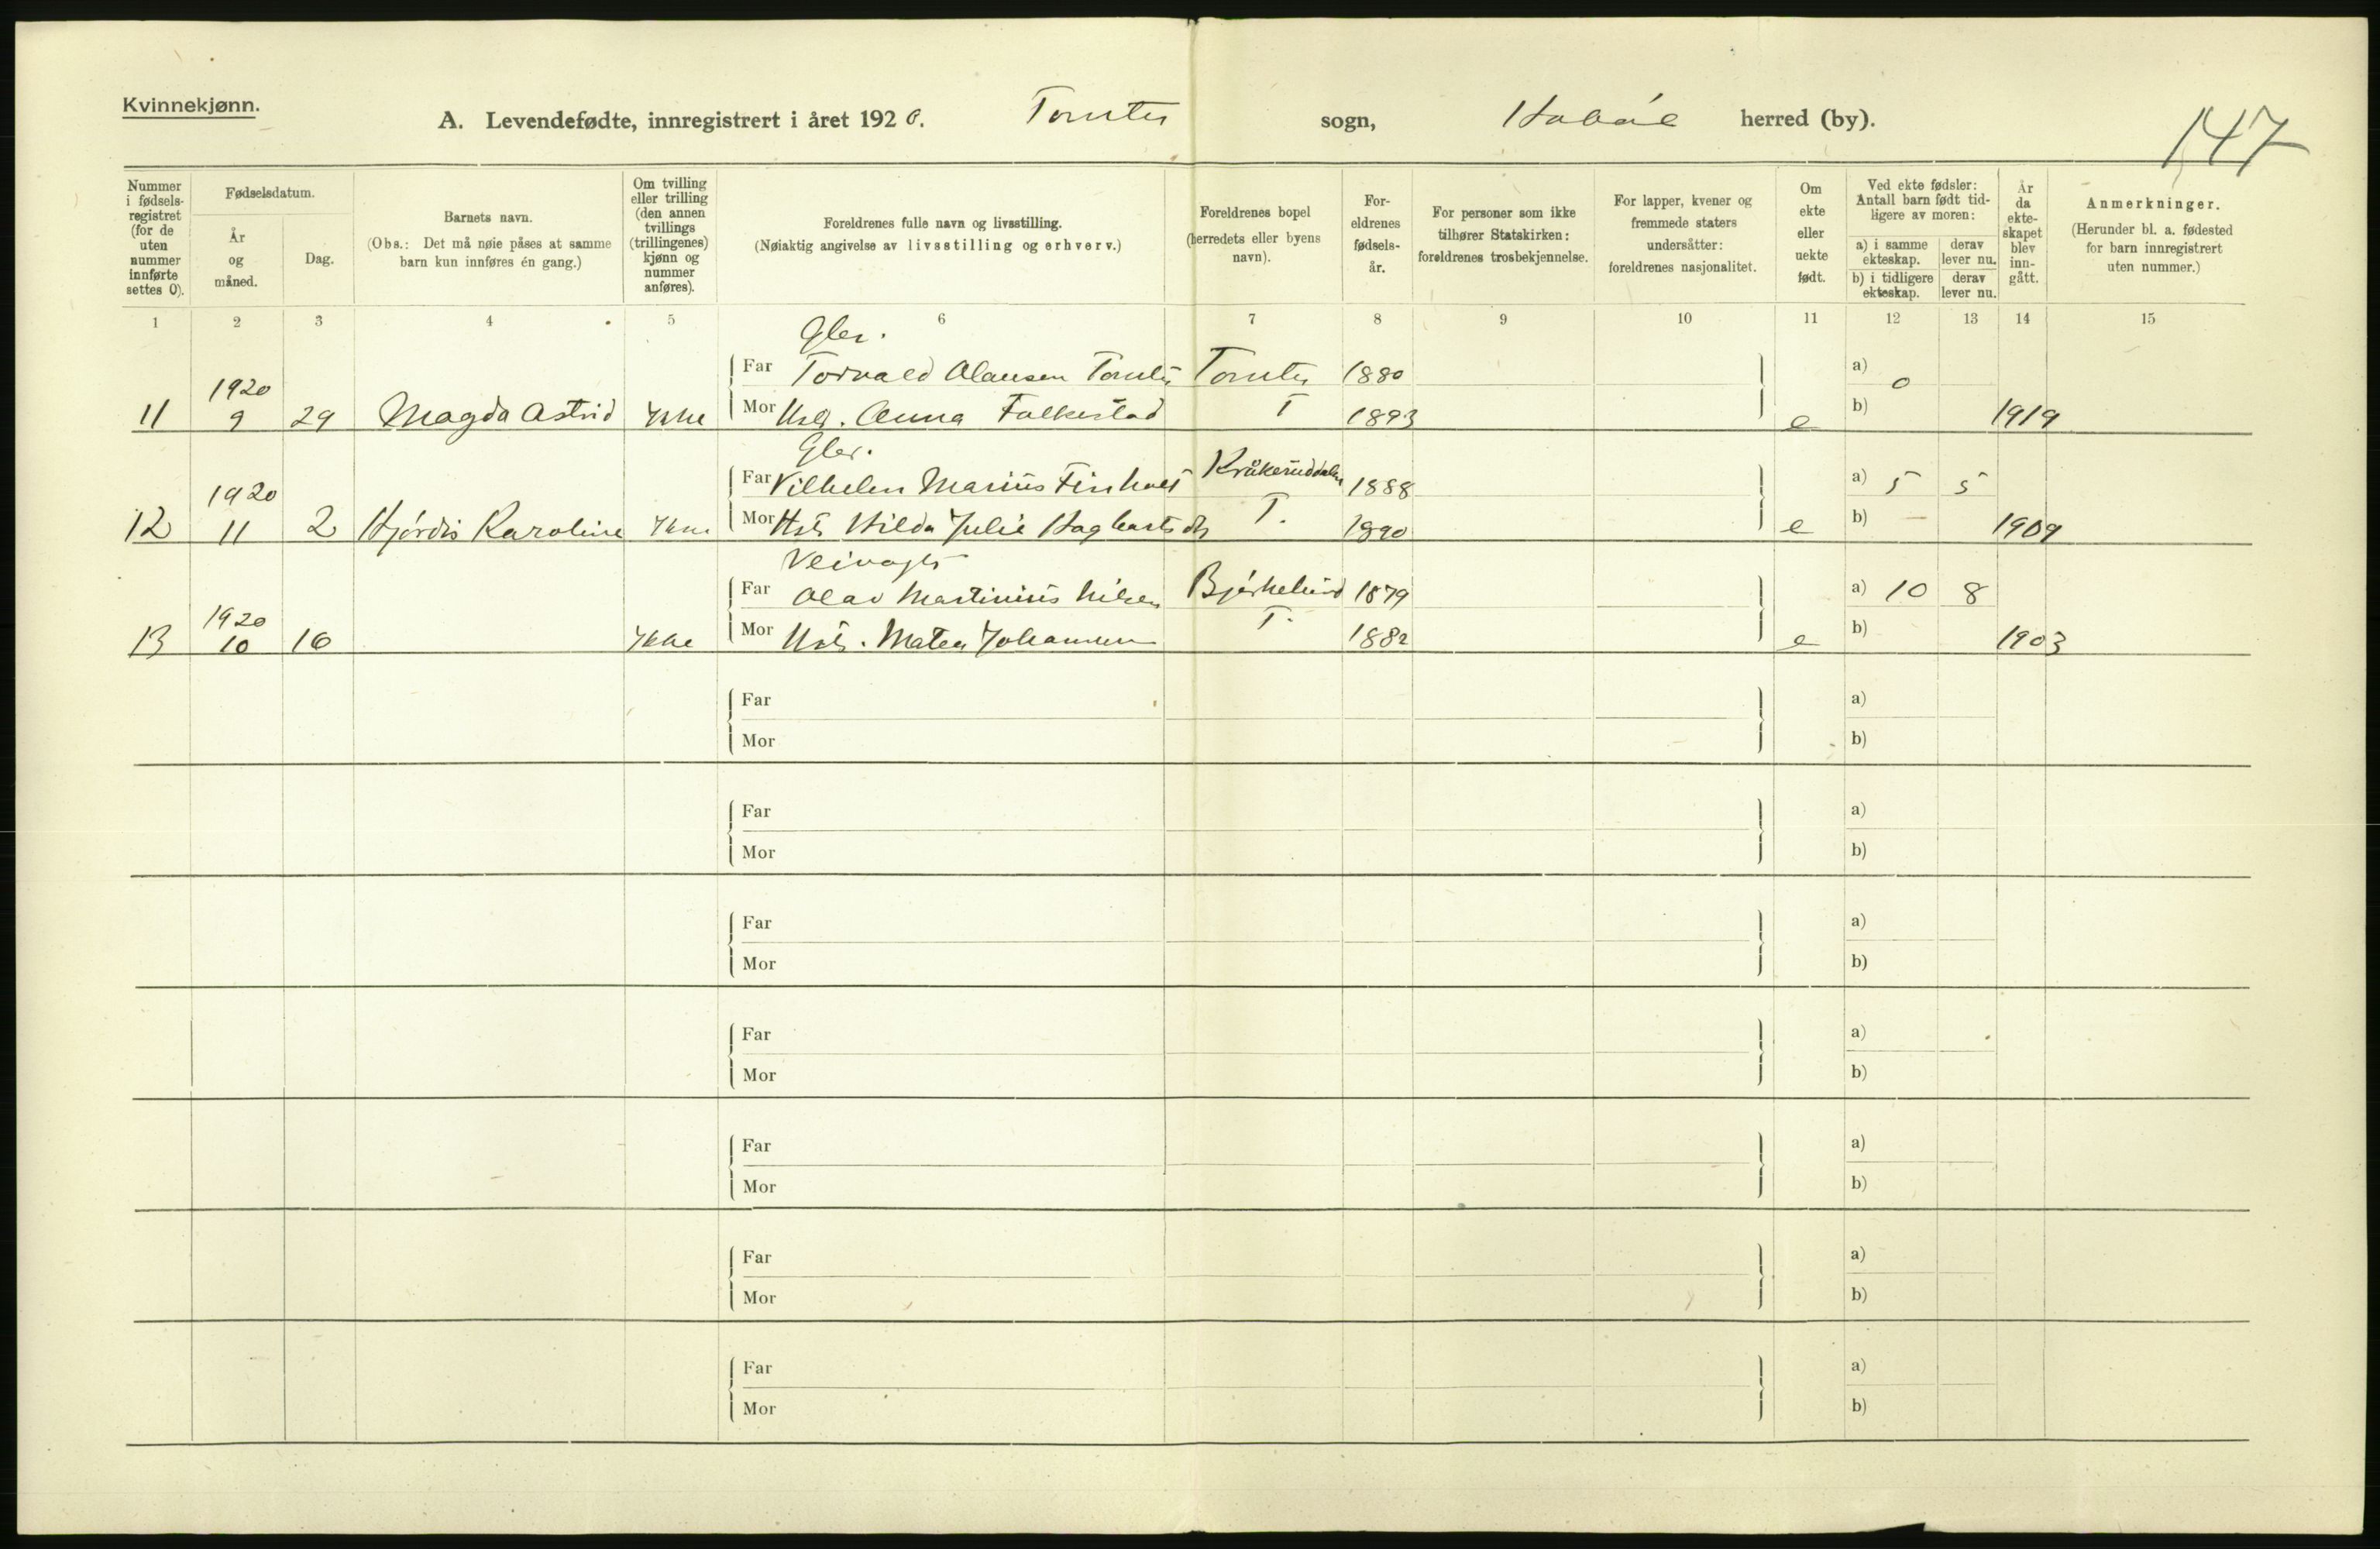 Kvinnekjønn.
A. Levendefødte, innregistrert i året 1920. Tomter sogn, Hobøl herred (by).
147
Nummer i fødsels-registret (for de uten nummer innførte settes 0).
Fødselsdatum.
År og måned.
Dag.
Barnets navn.
(Obs.: Det må nøie påses at samme barn kun innføres én gang.)
Om tvilling eller trilling (den annen tvillings (trillingenes) kjønn og nummer anføres).
Foreldrenes fulle navn og livsstilling.
(Nøiaktig angivelse av livsstilling og erhverv.)
Foreldrenes bopel (herredets eller byens navn).
For-eldrenes fødsels-år.
For personer som ikke tilhører Statskirken: foreldrenes trosbekjennelse.
For lapper, kvener og fremmede staters undersåtter: foreldrenes nasjonalitet.
Om ekte eller uekte født.
Ved ekte fødsler: Antall barn født tid-ligere av moren:
a) i samme ekteskap.
derav lever nu.
b) i tidligere ekteskap.
derav lever nu.
År da ekte-skapet blev inn-gått.
Anmerkninger.
(Herunder bl. a. fødested for barn innregistrert uten nummer.)
1 2 3 4 5 6 7 8 9 10 11 12 13 14 15
Gbr.
Far Torvald Olausen Tomter Tomter 1880 a) 0
1920
11 9 29 Magda Astrid Ikke Mor Hstr. Anna Falkestad T 1893 e b) 1919
Gbr.
Far Vilhelm Marius Finholt Kråkeruddalen 1888 a) 5 5
1920
12 11 2 Hjørdis Karoline Ikke Mor Hstr Hilda Julie Hagbartsdtr T. 1890 e b) — 1909
Veivogter
Far Olav Martinius Nilsen Bjørkelund 1879 a) 10 8
1920
13 10 16 Ikke Mor Hstr. Matea Johannesen T. 1882 e b) 1903
Far a)
Mor b)
Far a)
Mor b)
Far a)
Mor b)
Far a)
Mor b)
Far a)
Mor b)
Far a)
Mor b)
Far a)
Mor b)